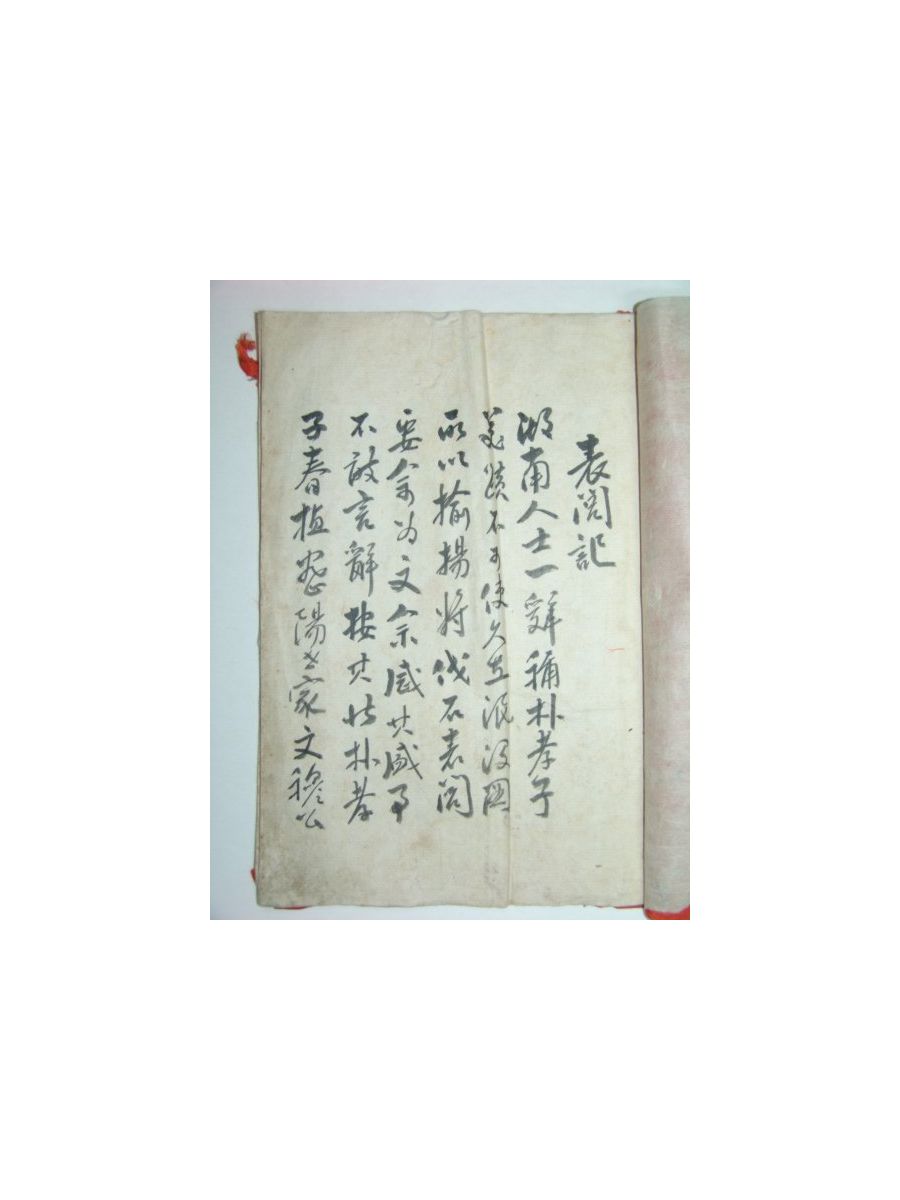 表閭記
湖南人士一辭稱朴孝子
美蹟不可使久至泯沒圖
所以揄揚將伐石表閭
要余爲文余感其盛事
不敢言辭按其狀朴孝
子春植密陽世家文穆公